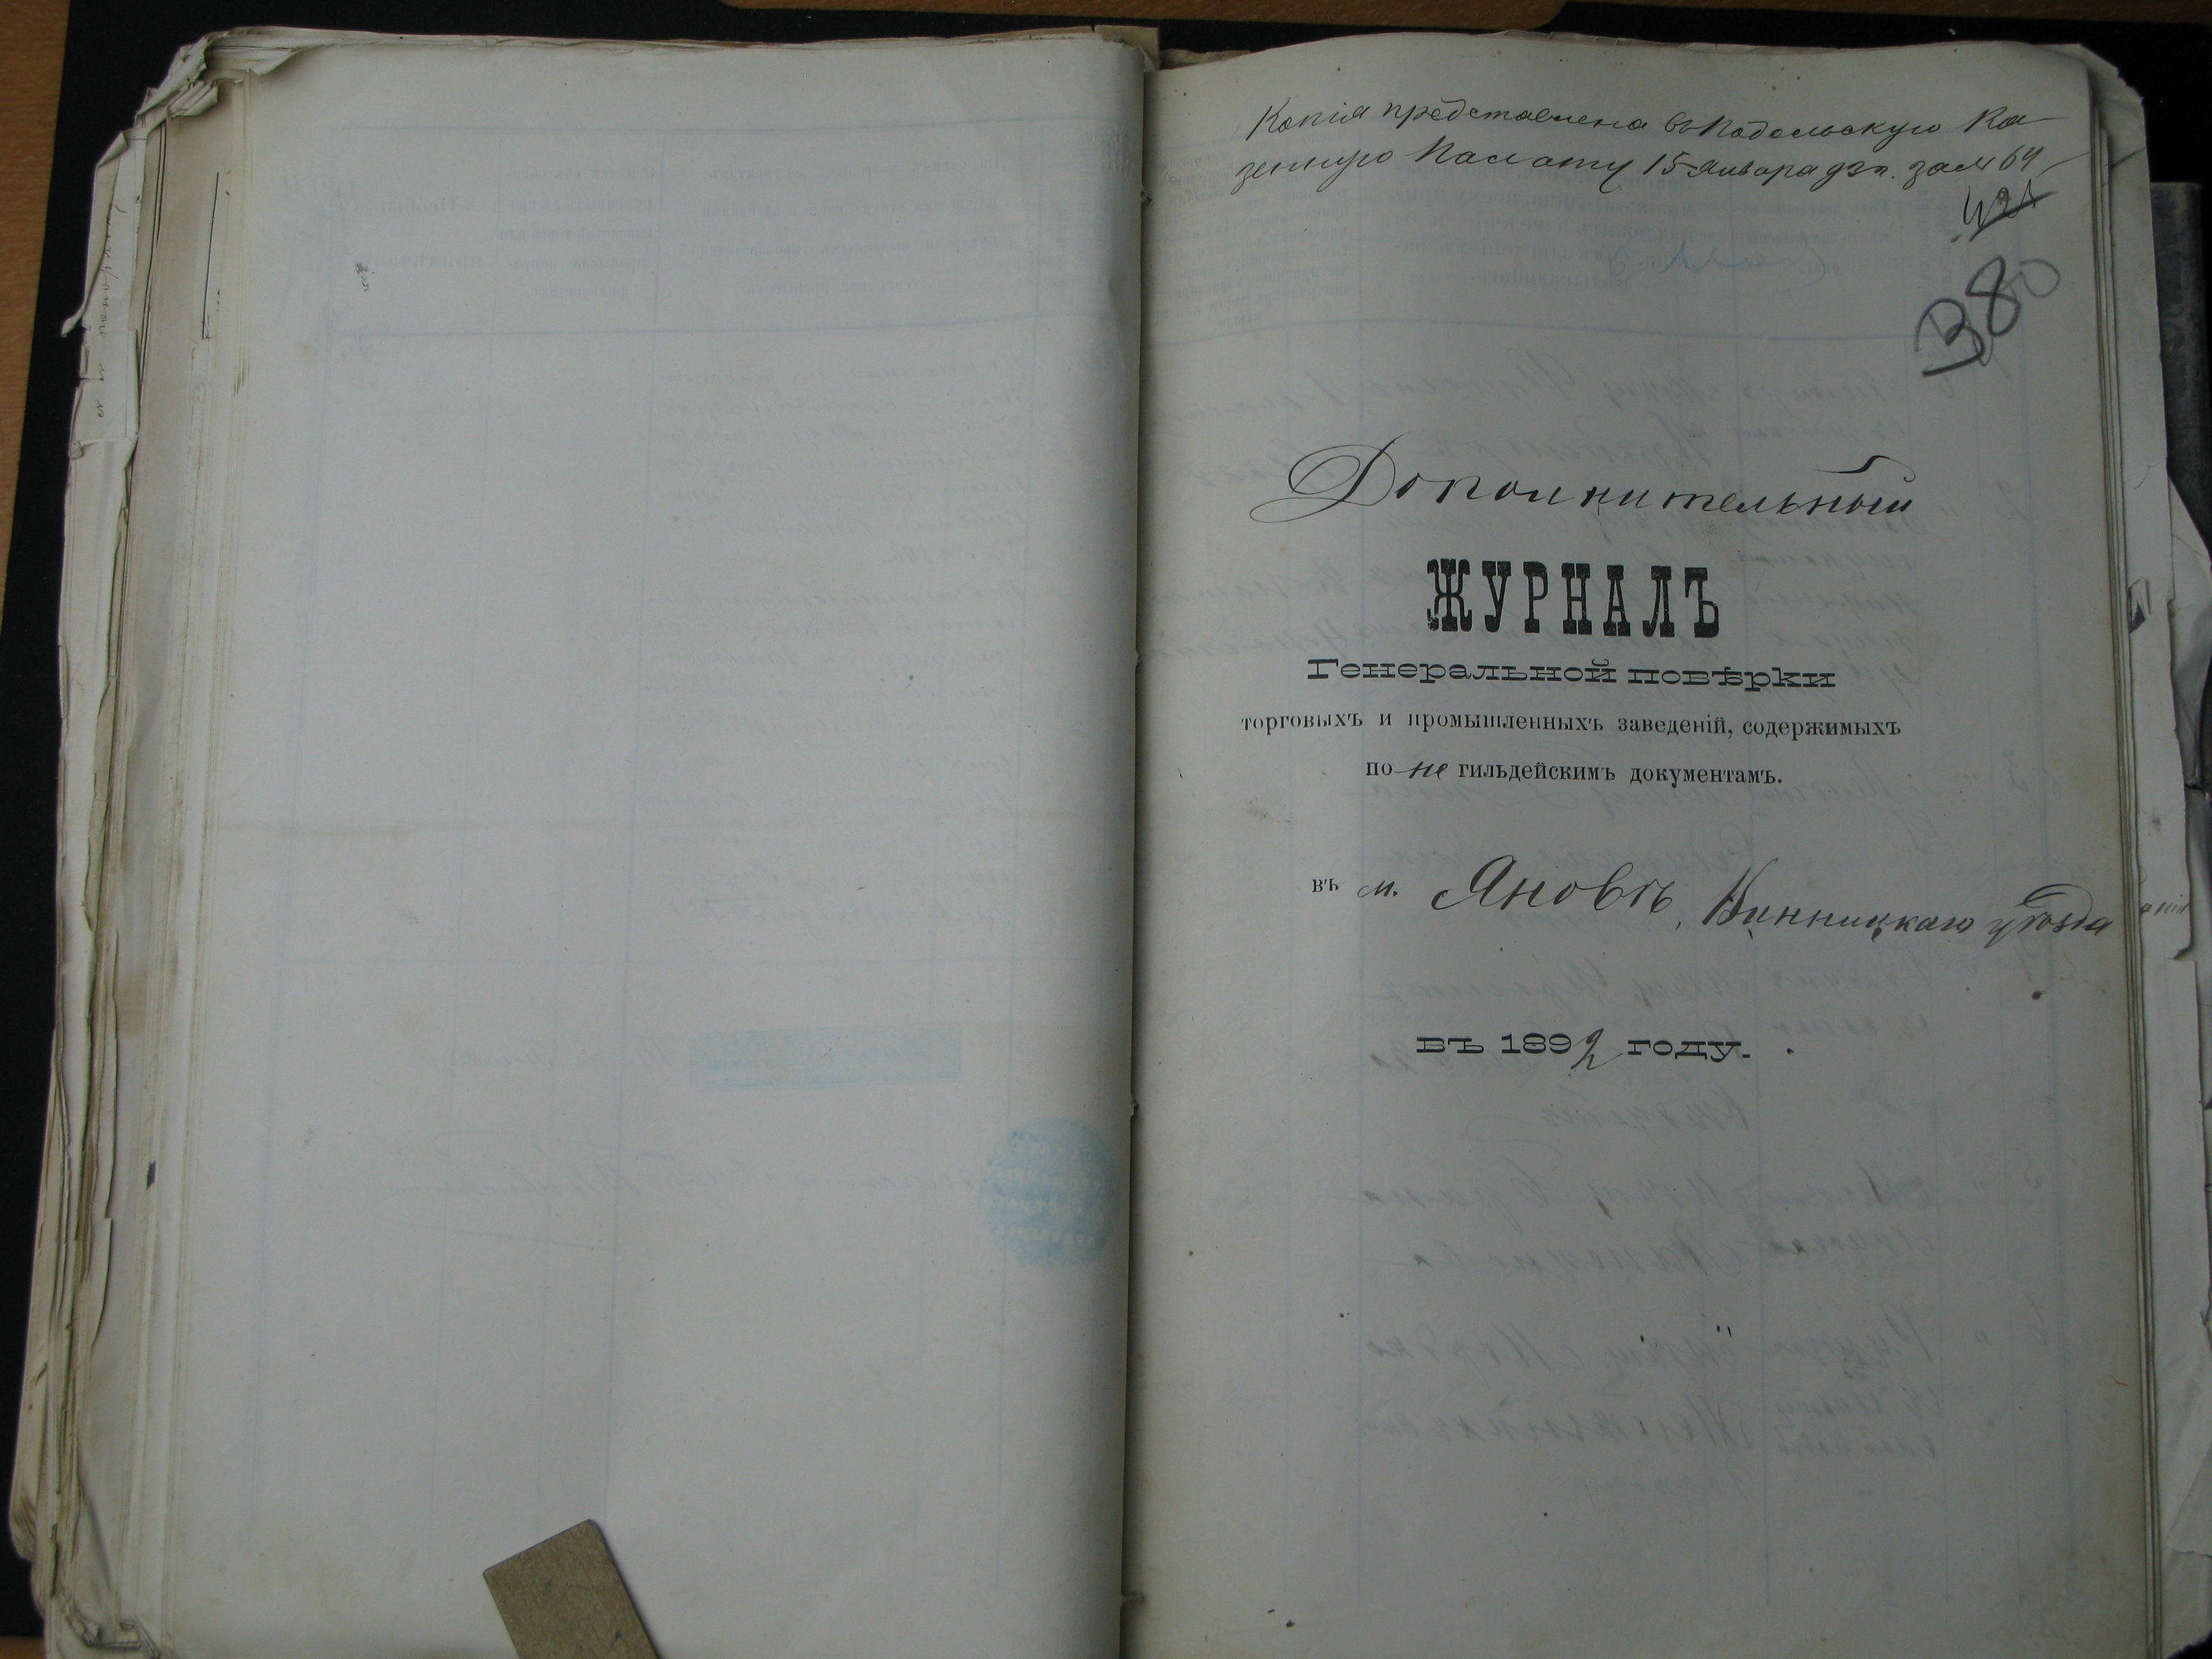 Копія представлена въ Подольскую Ка-
зенную Палату 15 Января 93 г. за № 64
421
380
Дополнительный
ЖУРНАЛЪ
Генеральной повѣрки
торговыхъ и промышленныхъ заведеній, содержимыхъ
по не гильдейскимъ документамъ.
въ м. Яновѣ, Винницкаго уѣзда
въ 1892 году.